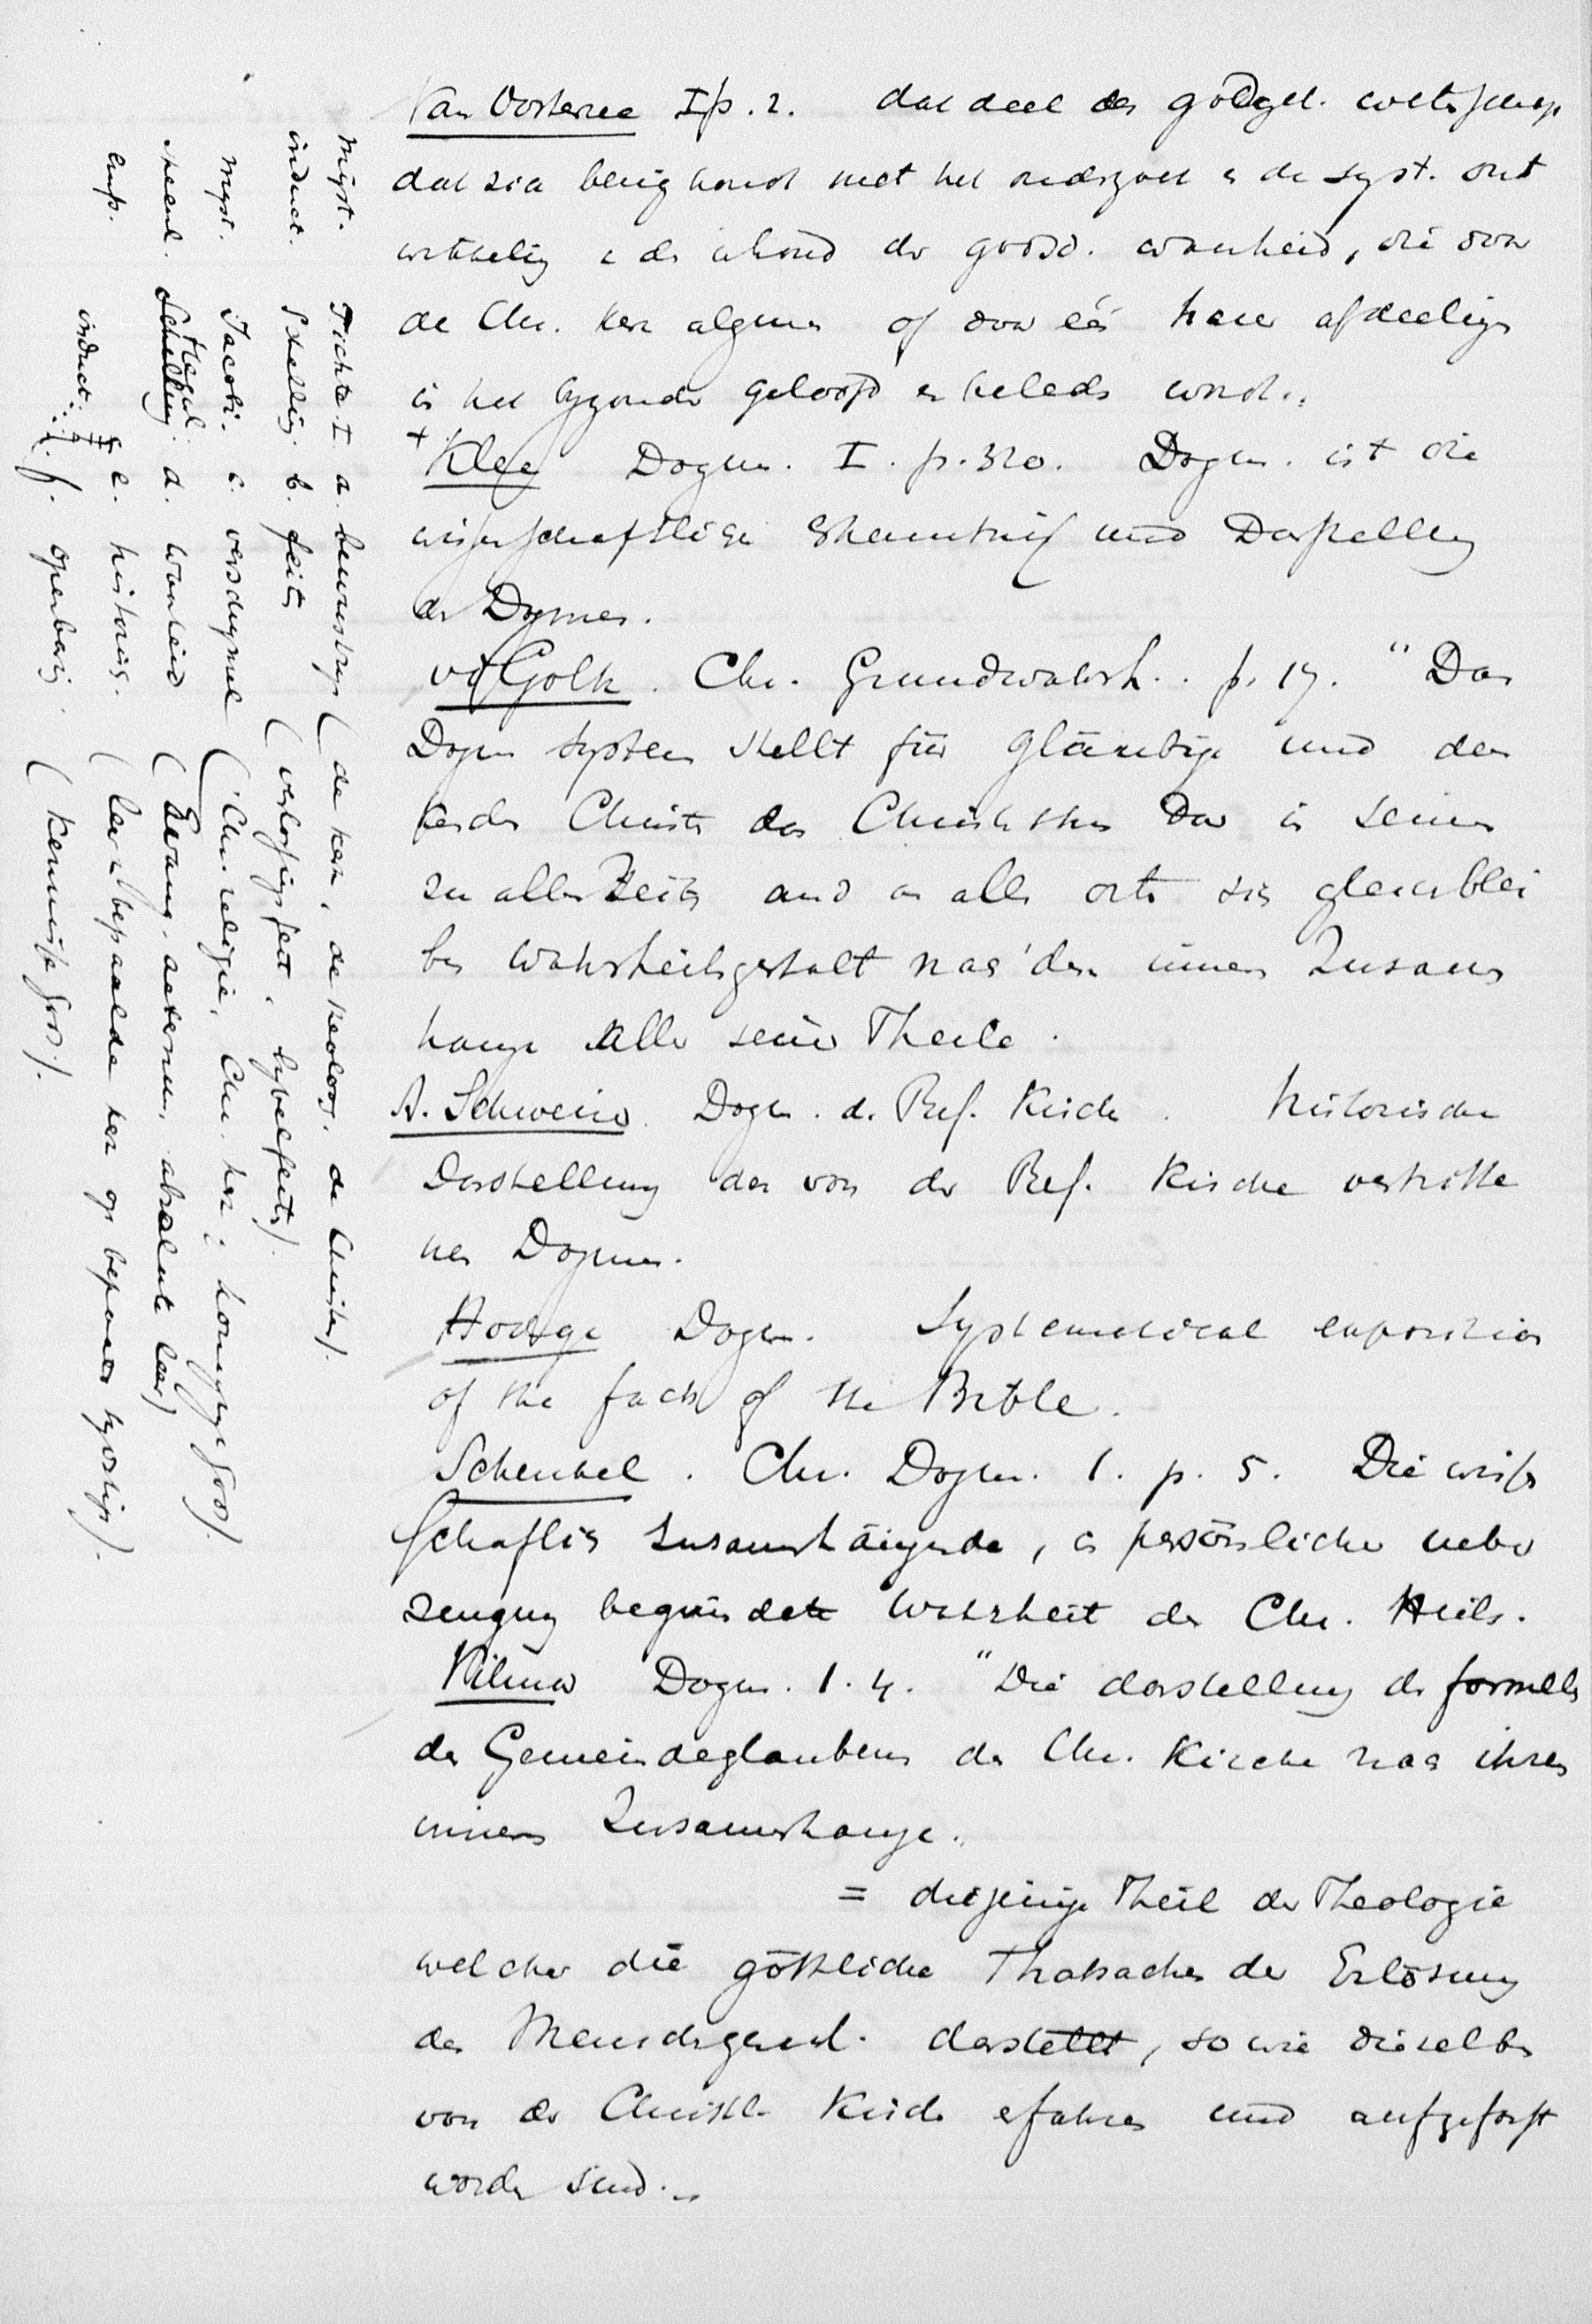 Van Oosterzee I p. 2. dat deel der godgel. wetenschap
dat zich bezig houdt met het onderzoek en de syst. ont
wikkeling v. den inhoud der godsd. waarheid, die door
de Chr. kerk algemeen of door één harer afdeelingen
in het byzonder geloofd en beleden wordt.
+ Klee Dogm. I. p. 320. Dogm. ist die
wissenschaftliche Erkenntniss und Darstellung
der Dogmen.
vd Goltz. Chr. Grundwahrh. p. 17. "Das
Dogmensystem stellt für Gläubige und den
kenden Christen das Christenthum dar in seiner
zu allen Zeiten und an allen Orten sich gleichblei
benden Wahrheitsgestalt nach dem innern Zusammen
hange aller seiner Theile.
A. Schweizer. Dogm. d. Ref. Kirche. historische
Darstellung der von der Ref. Kirche vertrete
nen Dogmen.
Hodge Dogm. Systematical exposition
of the facts of the Bible.
Schenkel. Chr. Dogm. 1. p. 5. Die wissen
schaftlich zusammenhängende, in persönlicher Ueber
zeugung begründete Wahrheit des Chr. Heils.
Vilmar Dogm. 1. 4. "Die darstellung der formellen
des Gemeindeglaubens der Chr. Kirche nach ihrem
innern Zusammenhange.
= diejenige Theil der Theologie
welcher die göttliche Thatsachen der Erlösung
des Menschengeschl. darstellt, so wie dieselben
von der Christl. Kirche erfahren und aufgefasst
worden sind.
Myst. Fichte I a. bewustzyn (de kerk, de theoloog, de Christen).
induct. Schelling. b. feiten (verlossingsfeit, bybelfeiten).
Myst. Jacobi. c. verschynsel (Chr. religie, Chr. kerk; koningryk Gods).
speenl. Schelling Hegel. d. waarheid (Evang. aeternum, absolute leer)
emp. e. historisch. (leer v. bepaalde kerk op bepaald tydstip).
induct. f. openbaring. (kennisse Gods).